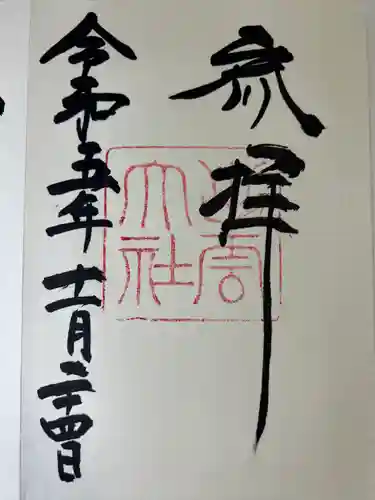 参拝
出雲大社
令和五年十一月二十四日